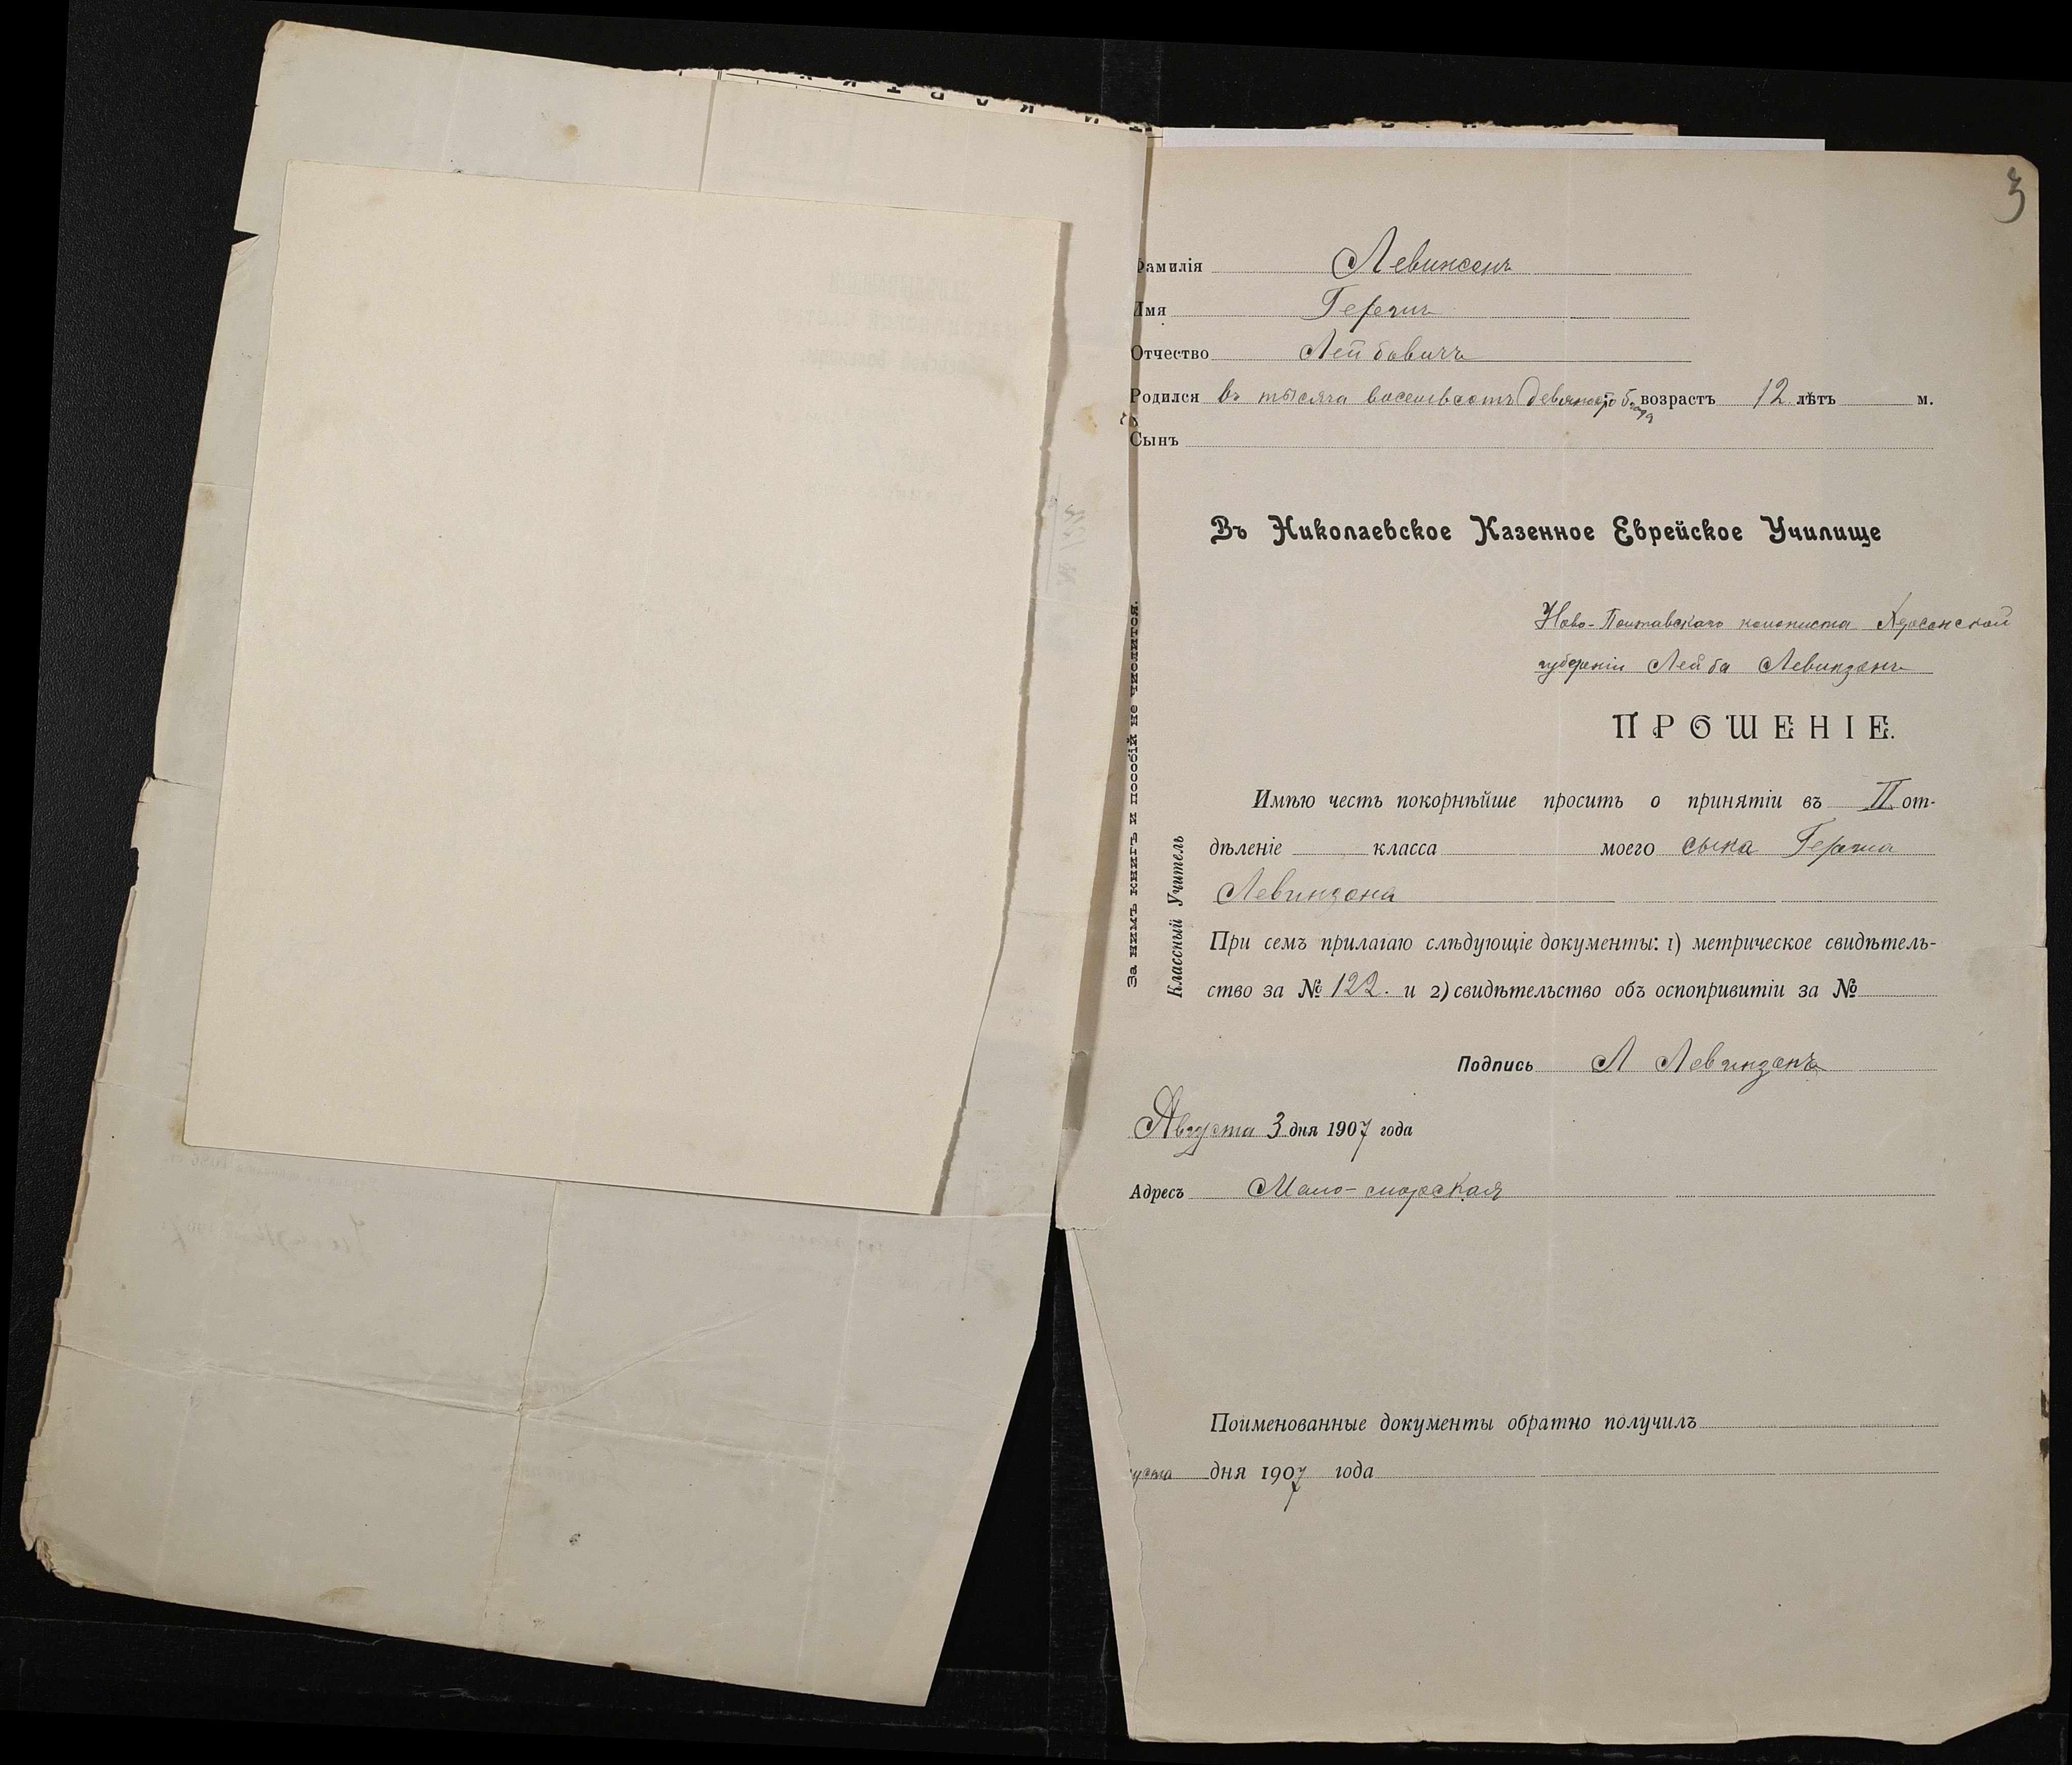 3
Фамилія Левинсонъ
Имя Гершъ
Отчество Лейбовичъ
Родился въ тысяча восемьсотъ девяносто 5 года возрастъ 12 лѣтъ м.
Сынъ
Въ Николаевское Казенное Еврейское Училище
Ново-Полтавскаго колониста Херсонской
губерніи Лейба Левинзонъ
ПРОШЕНІЕ.
Имѣю честь покорнѣйше просить о принятіи въ II от-
дѣленіе класса моего сына Герша
Левинзона
При семъ прилагаю слѣдующіе документы: 1) метрическое свидѣтель-
ство за № 122. и 2) свидѣтельство объ оспопривитіи за №
Подпись Л Левинзонъ
Августа 3 дня 1907 года
Адресъ Мало-морская
Поименованные документы обратно получилъ
уста дня 1907 года
За нимъ книгъ и пособій не числится.
Классный Учитель